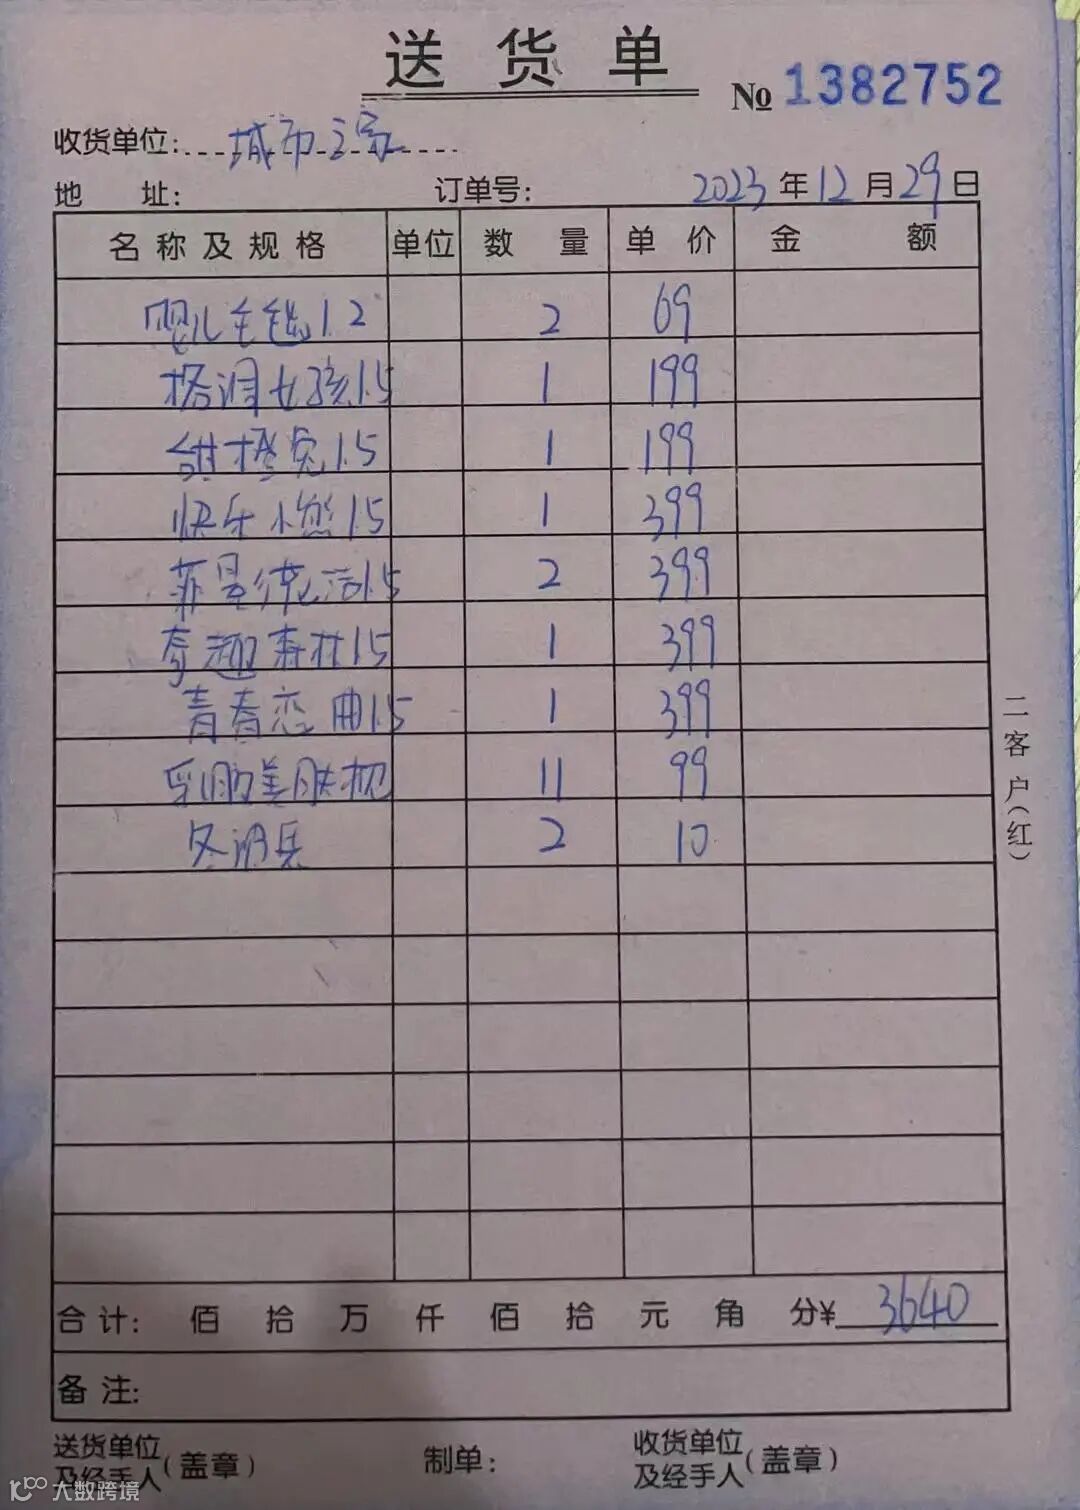 送货单
№ 1382752
收货单位: 城市之家
地 址: 订单号: 2023 年 12 月 29 日
名称及规格 单位 数量 单价 金额
婴儿毛毯1.2 2 69
格调女孩1.5 1 199
甜橙兔1.5 1 199
快乐小熊1.5 1 399
菲曼花语1.5 2 399
奇趣森林1.5 1 399
青春恋曲1.5 1 399
乳胶美肤枕 11 99
2 10
合计: 佰 拾 万 仟 佰 拾 元 角 分¥ 3640
备注:
送货单位及经手人(盖章) 制单: 收货单位及经手人(盖章)
二客户(红)
大数跨境